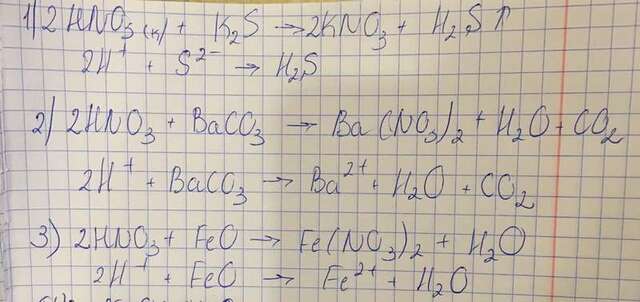 1) 2HNO₃(к) + K₂S → 2KNO₃ + H₂S↑
2H⁺ + S²⁻ → H₂S
2) 2HNO₃ + BaCO₃ → Ba(NO₃)₂ + H₂O + CO₂
2H⁺ + BaCO₃ → Ba²⁺ + H₂O + CO₂
3) 2HNO₃ + FeO → Fe(NO₃)₂ + H₂O
2H⁺ + FeO → Fe²⁺ + H₂O